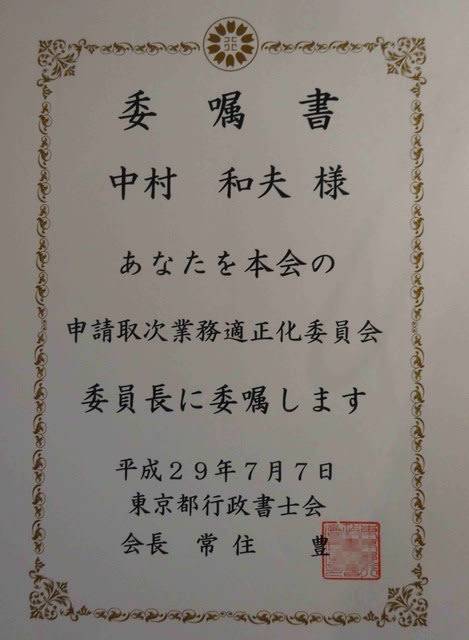 委嘱書
中村 和夫 様
あなたを本会の
申請取次業務適正化委員会
委員長に委嘱します
平成２９年７月７日
東京都行政書士会
会長 常住 豊